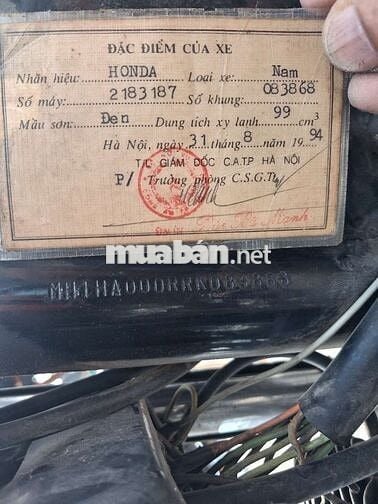 ĐẶC ĐIỂM CỦA XE
Nhãn hiệu: HONDA Loại xe: Nam
Số máy: 2183187 Số khung: 083868
Mầu sơn: Đen Dung tích xy lanh: 99 cm3
Hà Nội, ngày 31 tháng 8 năm 1994
T/L GIÁM ĐỐC C.A.T.P HÀ NỘI
P/ Trưởng phòng C.S.G.T
muaban.net